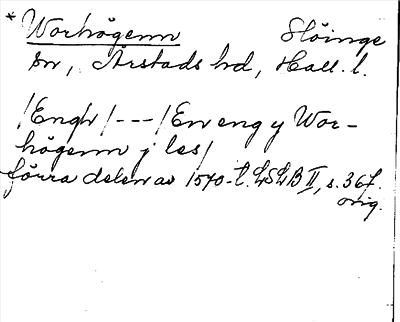 * Worhögenn Slöinge
sn, Årstads hd, Hall. l.
/Engh/---/En eng y Wor-
högenn j les/
förra delen av 1570-t. LSLB II, s. 367.
orig.